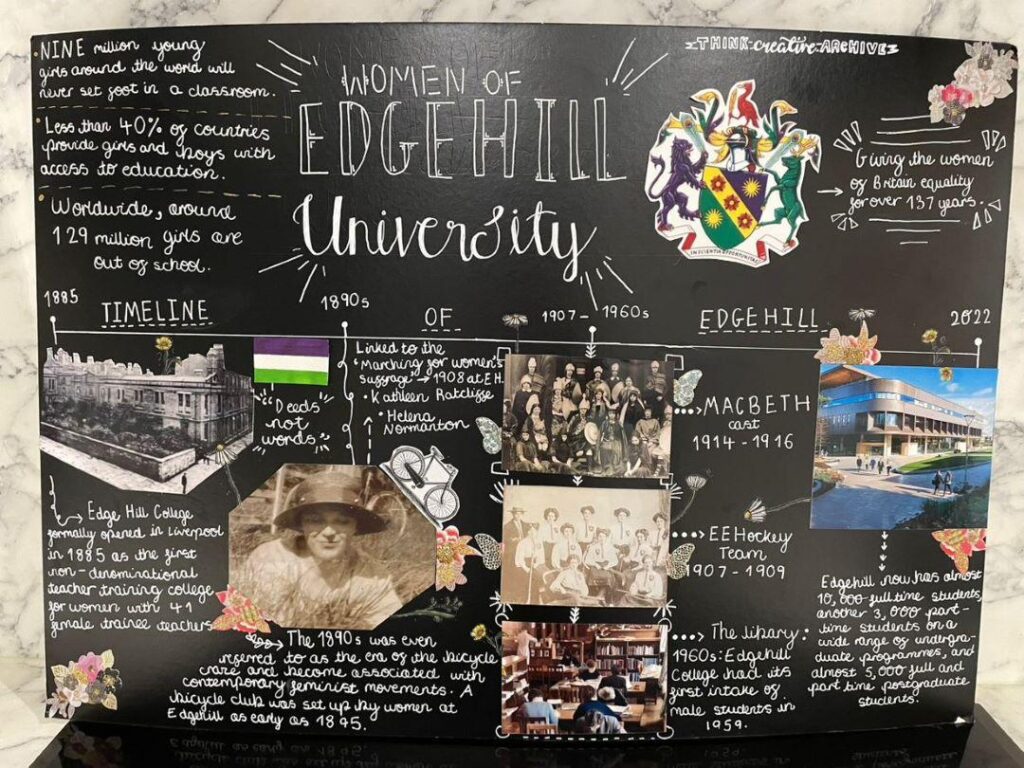 ·NINE million young
girls around the world will
never set foot in a classroom.
·Less than 40% of countries
provide girls and boys with
access to education.
·Worldwide, around
129 million girls are
out of school.
WOMEN OF
EDGEHILL
University
THINK creative ARCHIVE
Giving the women
of Britain equality
for over 137 years.
IN SCIENTIA OPPORTUNITAS
TIMELINE OF EDGEHILL
1885
1890s
1907- 1960s
2022
Edge Hill College
formally opened in Liverpool
in 1885 as the first
non-denominational
teacher training college
for women with 41
female trainee teachers
"Deeds
not
words."
·Linked to the
Marching for women's
suffrage → 1908 at E.H.
·Kathleen Ratcliffe
·Helena
Normanton
The 1890s was even
referred to as the era of the bicycle
craze and become associated with
contemporary feminist movements. A
bicycle club was set up by women at
Edgehill as early as 1895.
MACBETH
cast
1914-1916
EEHockey
Team
1907-1909
The library:
1960s: Edgehill
College had its
first intake of
male students in
1959.
Edgehill now has almost
10,000 full time students,
another 3,000 part-
time students on a
wide range of undergra-
duate programmes, and
almost 5,000 full and
part time postgraduate
students.